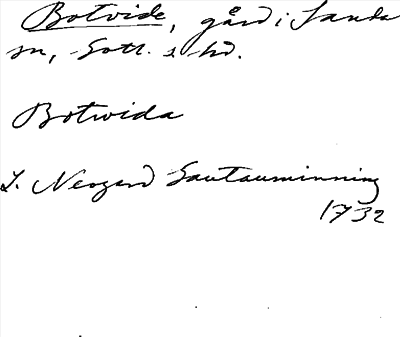 Botvide, gård i Sanda
sn, Gotl. s hd.
Botwida
L. Neogard Gautauminning
1732